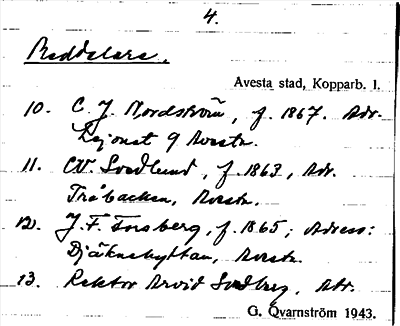 4.
Meddelare.
Avesta stad, Kopparb. l.
10. C. J. Nordström, f. 1867. Adr.
Lejonet 9 Avesta.
11. C.W. Svedlund, f. 1863, Adr.
Tråbacken, Avesta.
12. J. F. Forsberg, f. 1865; Adress:
Djäknehyttan, Avesta.
13. Rektor Arvid Sedberg, Adr.
G. Qvarnström 1943.